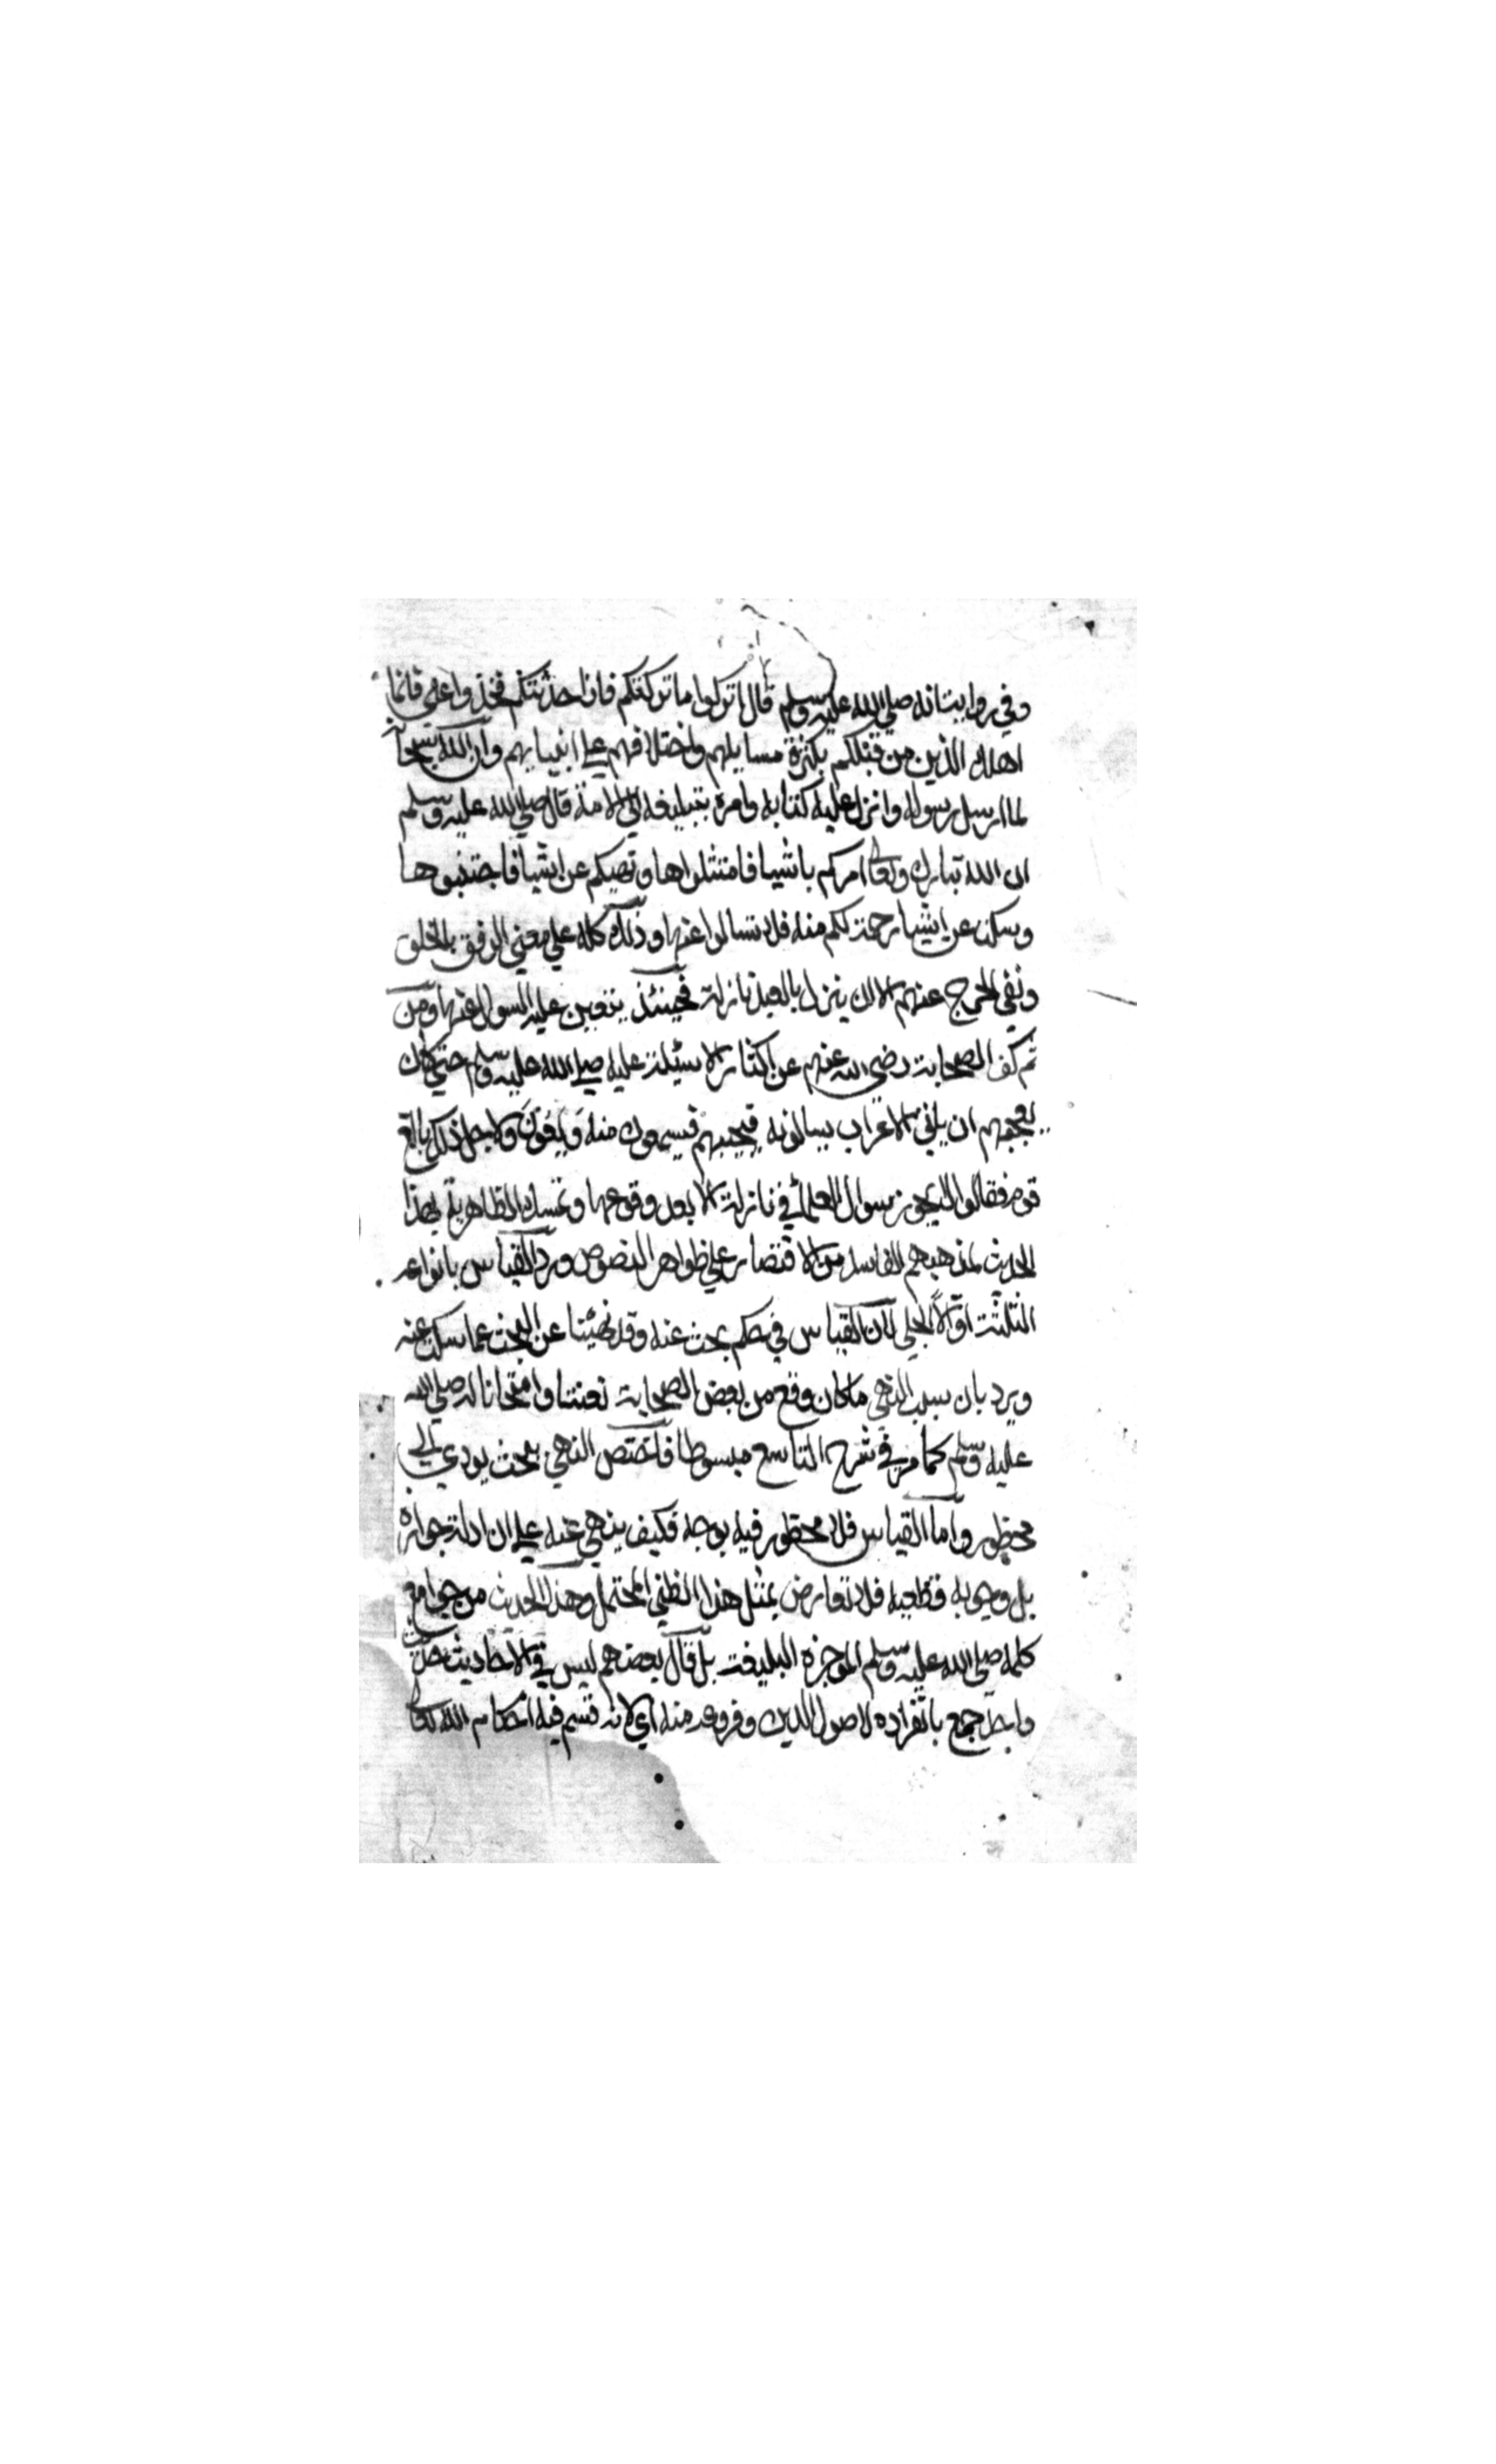 وفي رواية انه صلي الله عليه وسلم قال اتركوا ما تركتكم فاذا حدثتكم فخذوا عني فانما
اهلك الذين من قبلكم بكثرة مسايلهم واختلافهم علي انبيايهم وان الله سبحانه
لما ارسل رسوله وانزل عليه كتابه وامره بتبليغه الي الامة قال صلي الله عليه وسلم
ان الله تبارك وتعالي امركم باشيا فامتثلواها ونهيكم عن اشيا فاجتنبوها
وسكت عن اشيا رحمة لكم منه فلا تسالوا عنها وذلك كله علي معني الرفق بالخلق
ونفي الحرج عنهم الا ان ينزل بالعبد نازلة فحينئذ يتعين عليه السوال عنها ومن
ثم كف الصحابة رضي الله عنهم عن اكثار الاسئيلة عليه صلي الله عليه وسلم حتي كان
يعجبهم ان ياتي الاعراب يسالونه فيجيبهم فيسمعون منه ويعون ولاجل ذلك بالغ
قوم فقالوا لا يجوز سوال العلما في نازلة الا بعد وقوعها وتمسك الظاهرية بهذا
الحديث لمذهبهم الفاسد من الاقتصار علي ظواهر النصوص ورد القياس بانواعه
الثلثة اولا الجلي لان القياس في حكم بحث عنه وقد نهينا عن البحث عما سكت عنه
ويرد بان سبب النهي ما كان وقع من بعض الصحابة تعنتا وامتحانا له صلي الله
عليه وسلم كما مر في شرح التاسع مبسوطا فاختص النهي ببحث يودي الي
محظور واما القياس فلا محظور فيه بوجه فكيف ينهي عنه علي ان ادلة جوازه
بل وجوبه قطعية فلا تعارض بمثل هذا الظني المحتمل وهذا الحديث من جوامع
كلمه صلي الله عليه وسلم الموجزة البليغة بل قال بعضهم ليس في الاحاديث حديث
واحد جمع بانفراده لاصول الدين وفروعه منه اي لانه قسم فيه احكام الله تعالي